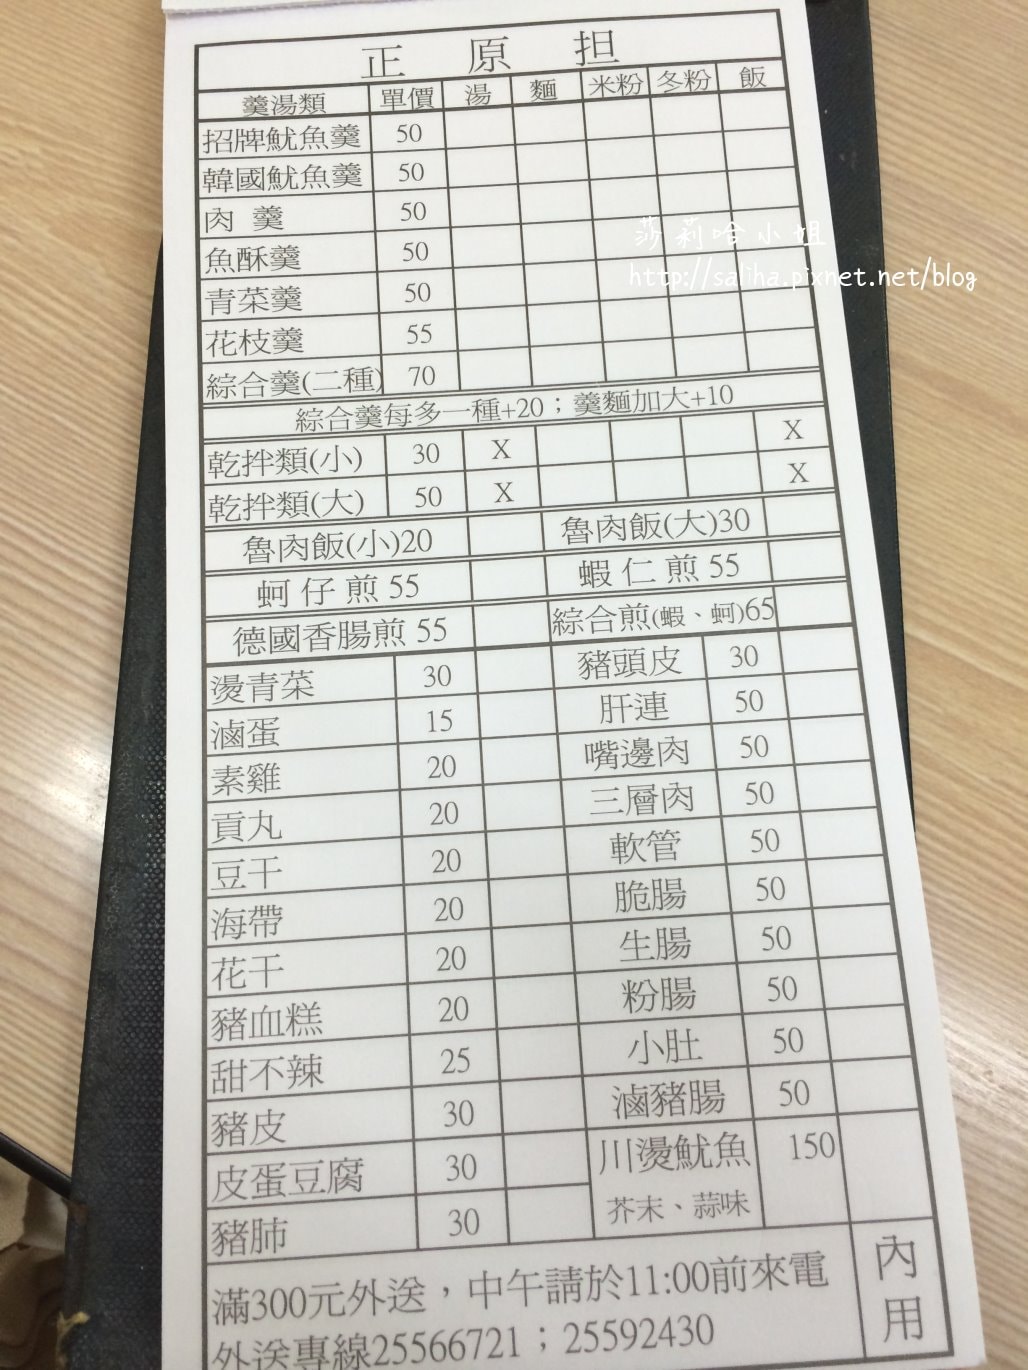 正 原 担
羹湯類 單價 湯 麵 米粉 冬粉 飯
招牌魷魚羹 50
韓國魷魚羹 50
肉 羹 50
魚酥羹 50
青菜羹 50
花枝羹 55
綜合羹(二種) 70
綜合羹每多一種+20；羹麵加大+10
乾拌類(小) 30 X X
乾拌類(大) 50 X X
魯肉飯(小)20 魯肉飯(大)30
蚵 仔 煎 55 蝦 仁 煎 55
德國香腸煎 55 綜合煎(蝦、蚵)65
燙青菜 30 豬頭皮 30
滷蛋 15 肝連 50
素雞 20 嘴邊肉 50
貢丸 20 三層肉 50
豆干 20 軟管 50
海帶 20 脆腸 50
花干 20 生腸 50
豬血糕 20 粉腸 50
甜不辣 25 小肚 50
豬皮 30 滷豬腸 50
皮蛋豆腐 30 川燙魷魚 150
豬肺 30 芥末、蒜味
滿300元外送，中午請於11:00前來電
外送專線25566721；25592430
內用
莎莉哈小姐
http://saliha.pixnet.net/blog